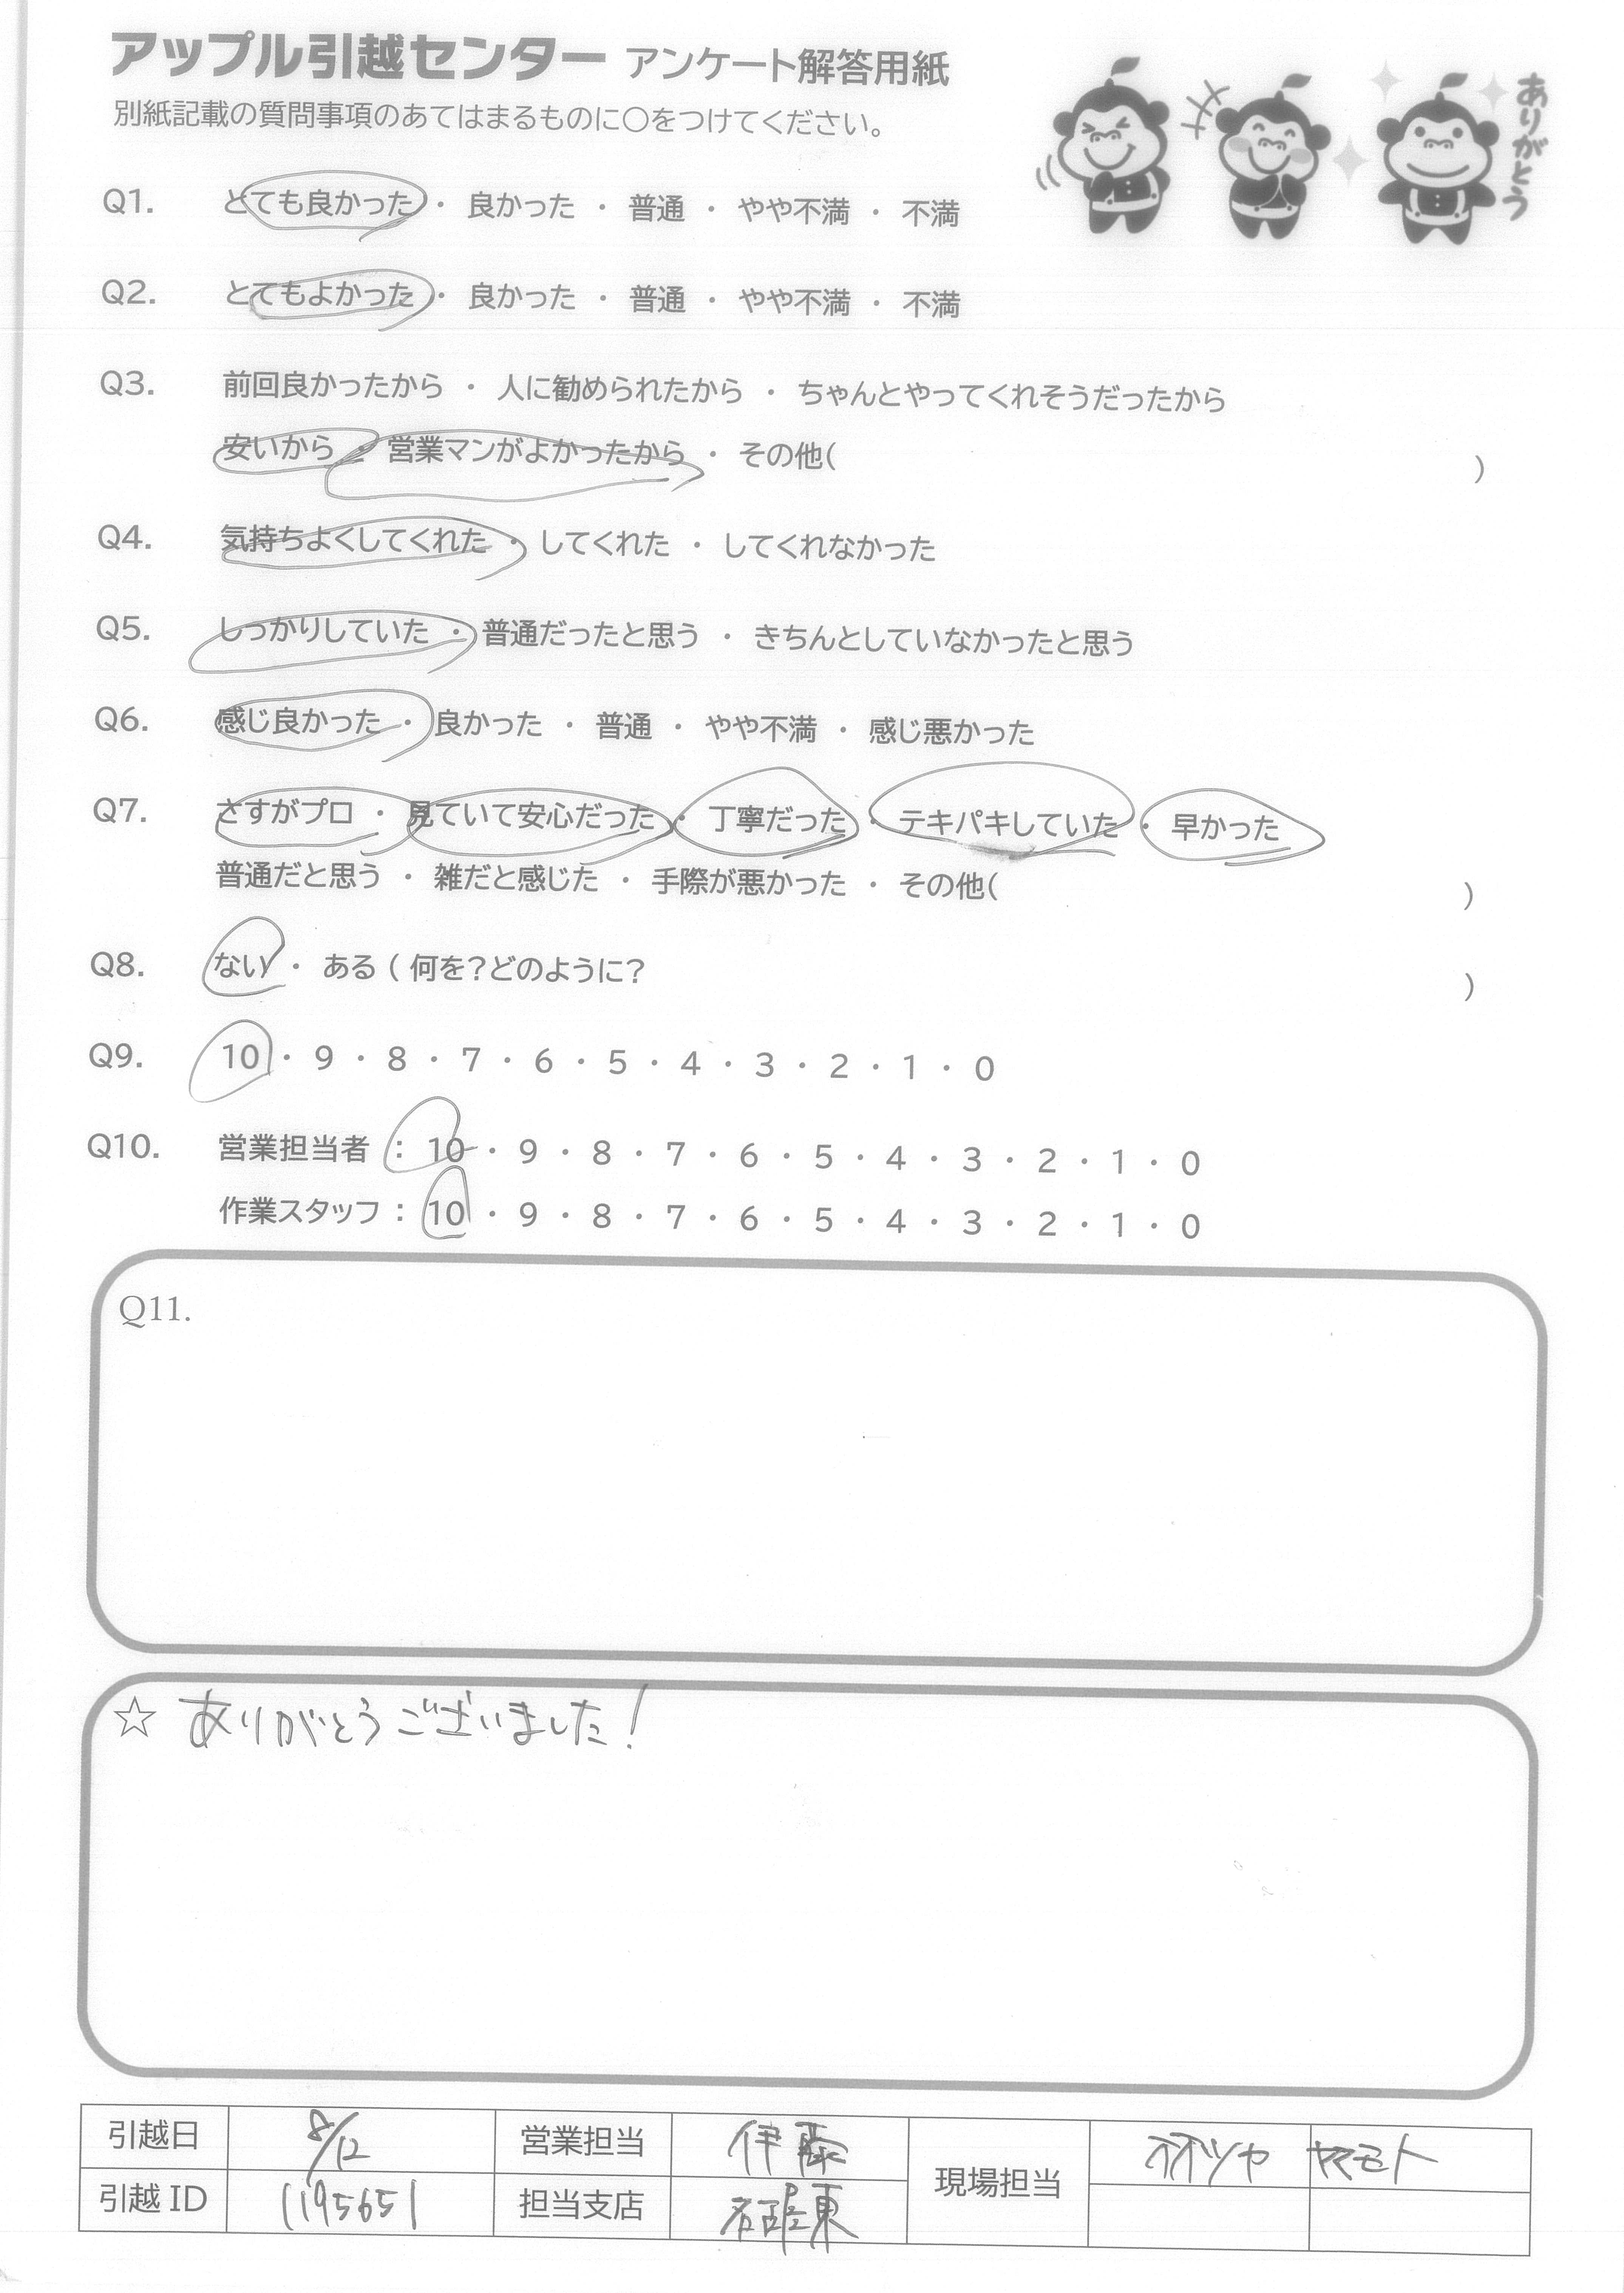 アップル引越センター アンケート解答用紙
別紙記載の質問事項のあてはまるものに〇をつけてください。
ありがとう
Q1. とても良かった ・ 良かった ・ 普通 ・ やや不満 ・ 不満
Q2. とてもよかった ・ 良かった ・ 普通 ・ やや不満 ・ 不満
Q3. 前回良かったから ・ 人に勧められたから ・ ちゃんとやってくれそうだったから
安いから ・ 営業マンがよかったから ・ その他( )
Q4. 気持ちよくしてくれた ・ してくれた ・ してくれなかった
Q5. しっかりしていた ・ 普通だったと思う ・ きちんとしていなかったと思う
Q6. 感じ良かった ・ 良かった ・ 普通 ・ やや不満 ・ 感じ悪かった
Q7. さすがプロ ・ 見ていて安心だった ・ 丁寧だった ・ テキパキしていた ・ 早かった
普通だと思う ・ 雑だと感じた ・ 手際が悪かった ・ その他( )
Q8. ない ・ ある ( 何を?どのように? )
Q9. 10 ・ 9 ・ 8 ・ 7 ・ 6 ・ 5 ・ 4 ・ 3 ・ 2 ・ 1 ・ 0
Q10. 営業担当者 : 10 ・ 9 ・ 8 ・ 7 ・ 6 ・ 5 ・ 4 ・ 3 ・ 2 ・ 1 ・ 0
作業スタッフ : 10 ・ 9 ・ 8 ・ 7 ・ 6 ・ 5 ・ 4 ・ 3 ・ 2 ・ 1 ・ 0
Q11.
☆ ありがとうございました!
引越日 8/12 営業担当 伊藤 現場担当 オオツヤ ヤマモト
引越 ID 1195651 担当支店 名古屋東